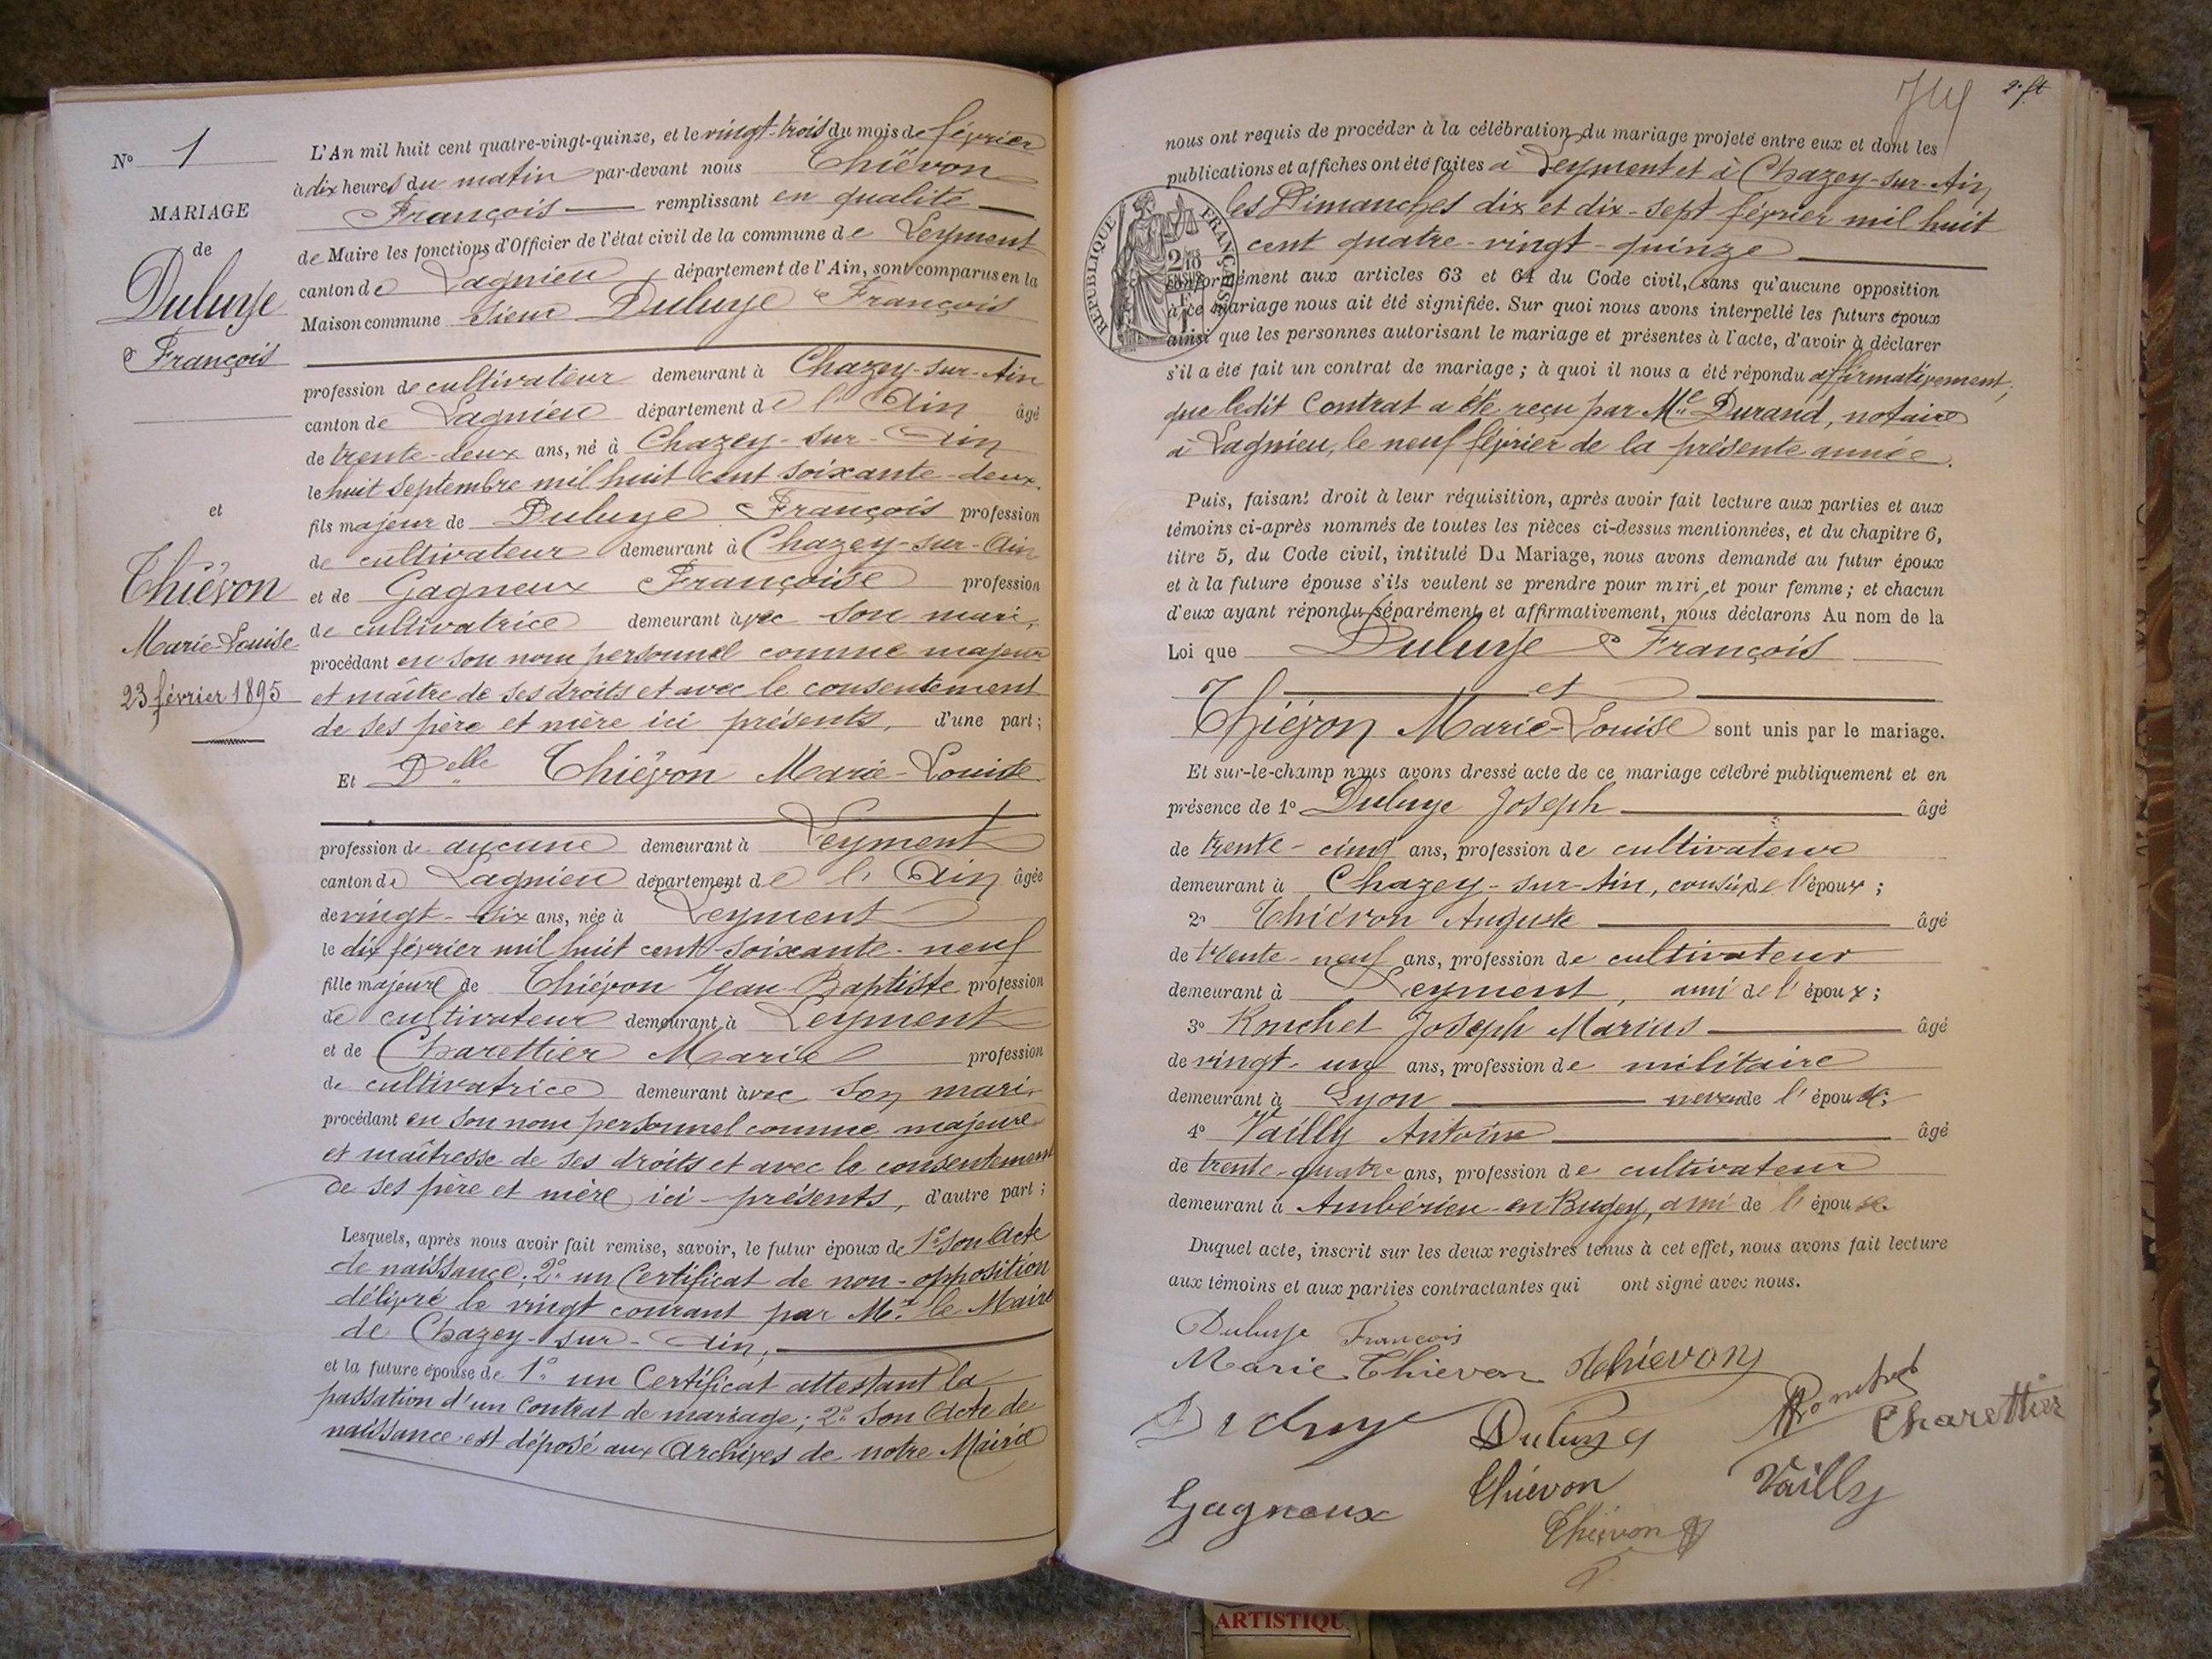 N° 1
MARIAGE
de
Duluye
François
et
Thiévon
Marie-Louise
23 février 1895
L'An mil huit cent quatre-vingt-quinze, et le vingt-trois du mois de février
à dix heures du matin par-devant nous Thiévon
François remplissant en qualité
de Maire les fonctions d'Officier de l'état civil de la commune de Leyment
canton de Lagnieu, département de l'Ain, sont comparus en la
Maison commune Sieur Duluye François
profession de cultivateur demeurant à Chazey-sur-Ain
canton de Lagnieu département de l'Ain âgé
de trente-deux ans, né à Chazey-sur-Ain
le huit septembre mil huit cent soixante-deux
fils majeur de Duluye François profession
de cultivateur demeurant à Chazey-sur-Ain
et de Gagneux Françoise profession
de cultivatrice demeurant avec son mari,
procédant en son nom personnel comme majeur
et maître de ses droits et avec le consentement
de ses père et mère ici présents, d'une part;
Et Delle Thiévon Marie-Louise
profession de aucune demeurant à Leyment
canton de Lagnieu département de l'Ain âgée
de vingt-six ans, née à Leyment
le dix février mil huit cent soixante-neuf
fille majeure de Thiévon Jean Baptiste profession
de cultivateur demeurant à Leyment
et de Charettier Marie profession
de cultivatrice demeurant avec son mari,
procédant en son nom personnel comme majeure
et maîtresse de ses droits et avec le consentement
de ses père et mère ici-présents, d'autre part;
Lesquels, après nous avoir fait remise, savoir, le futur époux de 1° son Acte
de naissance; 2° un Certificat de non-opposition
délivré le vingt courant par Mr. le Maire
de Chazey-sur-Ain;
et la future épouse de 1° un Certificat attestant la
passation d'un Contrat de mariage; 2° Son Acte de
naissance est déposé aux Archives de notre Mairie
2e ft
nous ont requis de procéder à la célébration du mariage projeté entre eux et dont les
publications et affiches ont été faites à Leyment et à Chazey-sur-Ain
les Dimanches dix et dix-sept février mil huit
cent quatre-vingt-quinze
RÉPUBLIQUE FRANÇAISE
conformément aux articles 63 et 64 du Code civil, sans qu'aucune opposition
à ce mariage nous ait été signifiée. Sur quoi nous avons interpellé les futurs époux
ainsi que les personnes autorisant le mariage et présentes à l'acte, d'avoir à déclarer
s'il a été fait un contrat de mariage; à quoi il nous a été répondu affirmativement,
que ledit Contrat a été reçu par Me Durand, notaire
à Lagnieu, le neuf février de la présente année.
Puis, faisant droit à leur réquisition, après avoir fait lecture aux parties et aux
témoins ci-après nommés de toutes les pièces ci-dessus mentionnées, et du chapitre 6,
titre 5, du Code civil, intitulé Du Mariage, nous avons demandé au futur époux
et à la future épouse s'ils veulent se prendre pour mari et pour femme; et chacun
d'eux ayant répondu séparément et affirmativement, nous déclarons Au nom de la
Loi que Duluye François
et
Thiévon Marie-Louise sont unis par le mariage.
Et sur-le-champ nous avons dressé acte de ce mariage célébré publiquement et en
présence de 1° Duluye Joseph âgé
de trente-cinq ans, profession de cultivateur
demeurant à Chazey-sur-Ain, cousin de l'époux;
2° Thiévon Auguste âgé
de trente-neuf ans, profession de cultivateur
demeurant à Leyment, ami de l'époux;
3° Ronchet Joseph Marius âgé
de vingt-un ans, profession de militaire
demeurant à Lyon neveu de l'épouse;
4° Vailly Antoine âgé
de trente-quatre ans, profession de cultivateur
demeurant à Ambérieu-en-Bugey, ami de l'épouse.
Duquel acte, inscrit sur les deux registres tenus à cet effet, nous avons fait lecture
aux témoins et aux parties contractantes qui ont signé avec nous.
Duluye François
Marie Thievon Thiévon
Duluye Duluye Ronchet Charettier
Gagneux Thiévon Vailly
Thiévon
ARTISTIQU